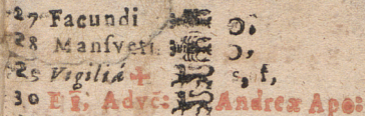 27 Facundi
28 Manſveti
29 Vigiliá ✝ s, f,
30 Adve: Andreæ Apo: